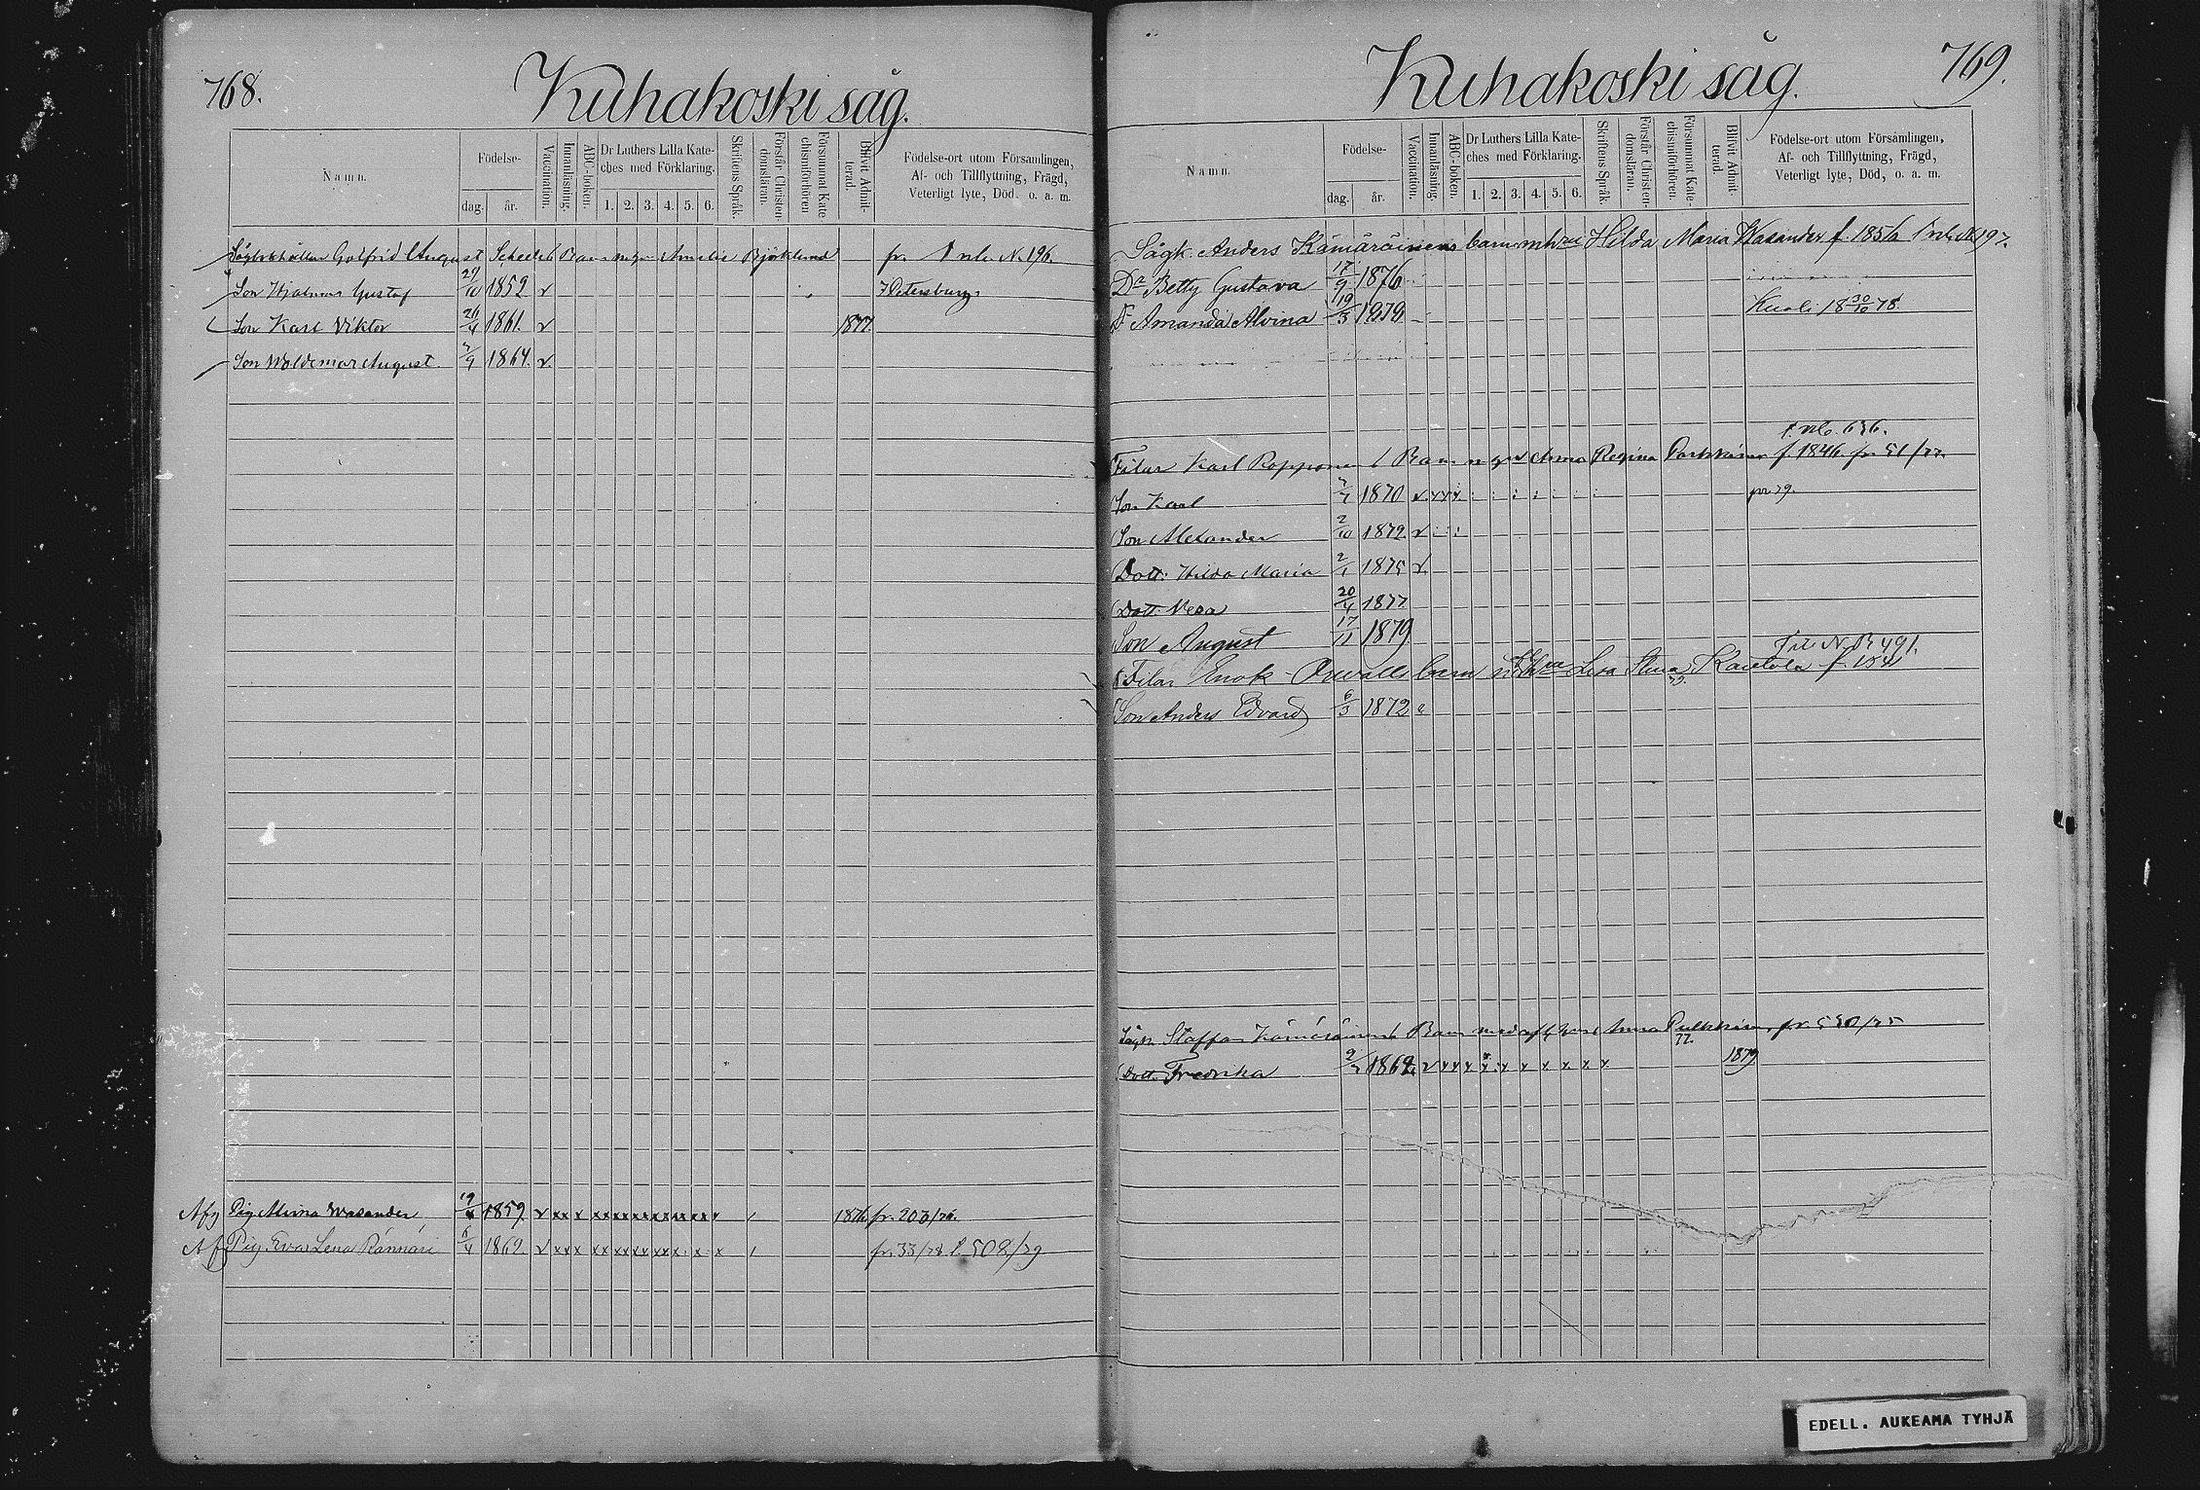 768.
Kuhakoski såg.
Namn.
Födelse-
dag.
år.
Vaccination.
Innanläsning.
ABC-boken.
Dr Luthers Lilla Kate-
ches med Förklaring.
1. 2. 3. 4. 5. 6.
Skriftens Språk.
Förstår Christen-
domsläran.
Försummat Kate-
chismiförhören
Blivit Admit-
terad.
Födelse-ort utom Församlingen,
Af- och Tillflyttning, Frägd,
Veterligt lyte, Död. o. a. m.
Gotfrid August Barn Amalie Björklund fr. N. 196.
Son Hjalmar Gustaf 29/10 1859 v Petersburg
Son Karl Viktor 26/4 1861. v 1877.
Son Woldemar August 1864. v.
Afg Pig. Alvina Wasander 1859. v xx x xx xx xx xx 1876 fr. 203/76.
Af Pig. Eva Lena 6/4 1862. v xx x xx xx fr. 33/78. 508/79
769.
Kuhakoski såg.
Namn.
Födelse-
dag.
år.
Vaccination.
Innanläsning.
ABC-boken.
Dr Luthers Lilla Kate-
ches med Förklaring.
1. 2. 3. 4. 5. 6.
Skriftens Språk.
Förstår Christen-
domsläran.
Försummat Kate-
chismiförhören.
Blivit Admit-
terad.
Födelse-ort utom Församlingen,
Af- och Tillflyttning, Frägd,
Veterligt lyte, Död, o. a. m.
Sågk. Anders Kämäräinens barn m h:ru Hilda Maria Wasander f. N 197.
Dr Betty Gustava 17/9 1876
Dr Amanda Alvina 19/3 1878 Kuoli 18 30/10 78.
Filar Karl Barn Anna Regina f 1846 fr 51/77.
Son Karl 1870 v x x x
Son Alexander 2/10 1872 v
Dott. Hilda Maria 2/1 1875 v
Dott. 20/4 1877
Son August 17/11 1879
Till N. 491.
Filar Enok barn Lisa Stina
Son Anders Edvard 6/3 1872
Sågk. Staffan Kämäräinens Barn med Anna Pulkkinen fr 590/75
77.
Dott. Fredrika 1862 v x x x x x x x x x 1879
EDELL. AUKEAMA TYHJÄ